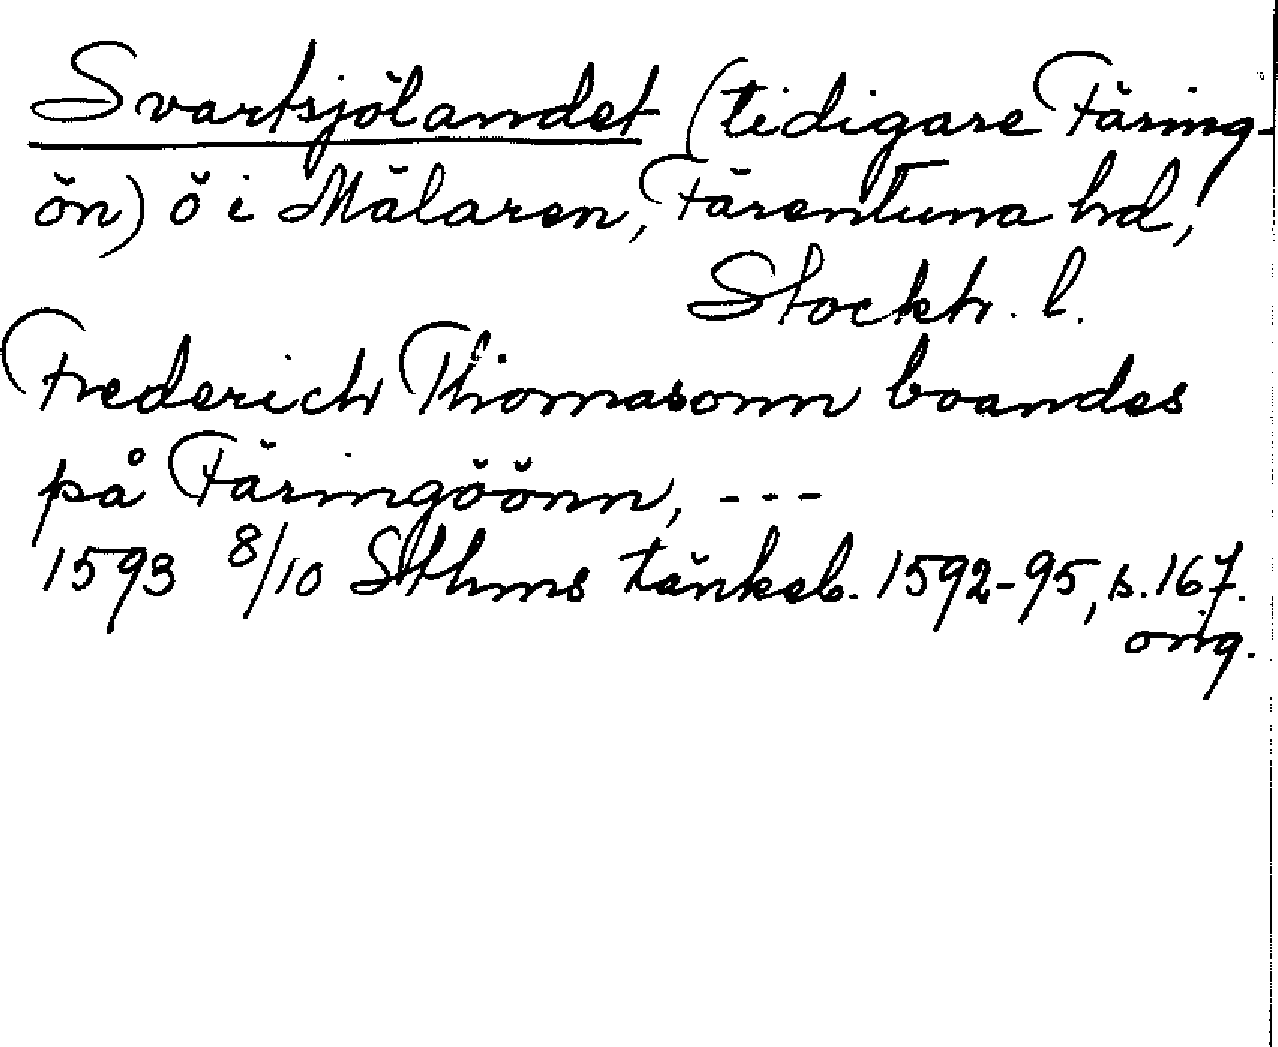 Svartsjölandet (tidigare Färing-
ön) ö i Mälaren, Färentuna hd,
Stockh. l.
Frederich Thomasonn boandes
på Färingöönn, ---
1593 8/10 Sthms tänkeb. 1592-95, s. 167.
orig.